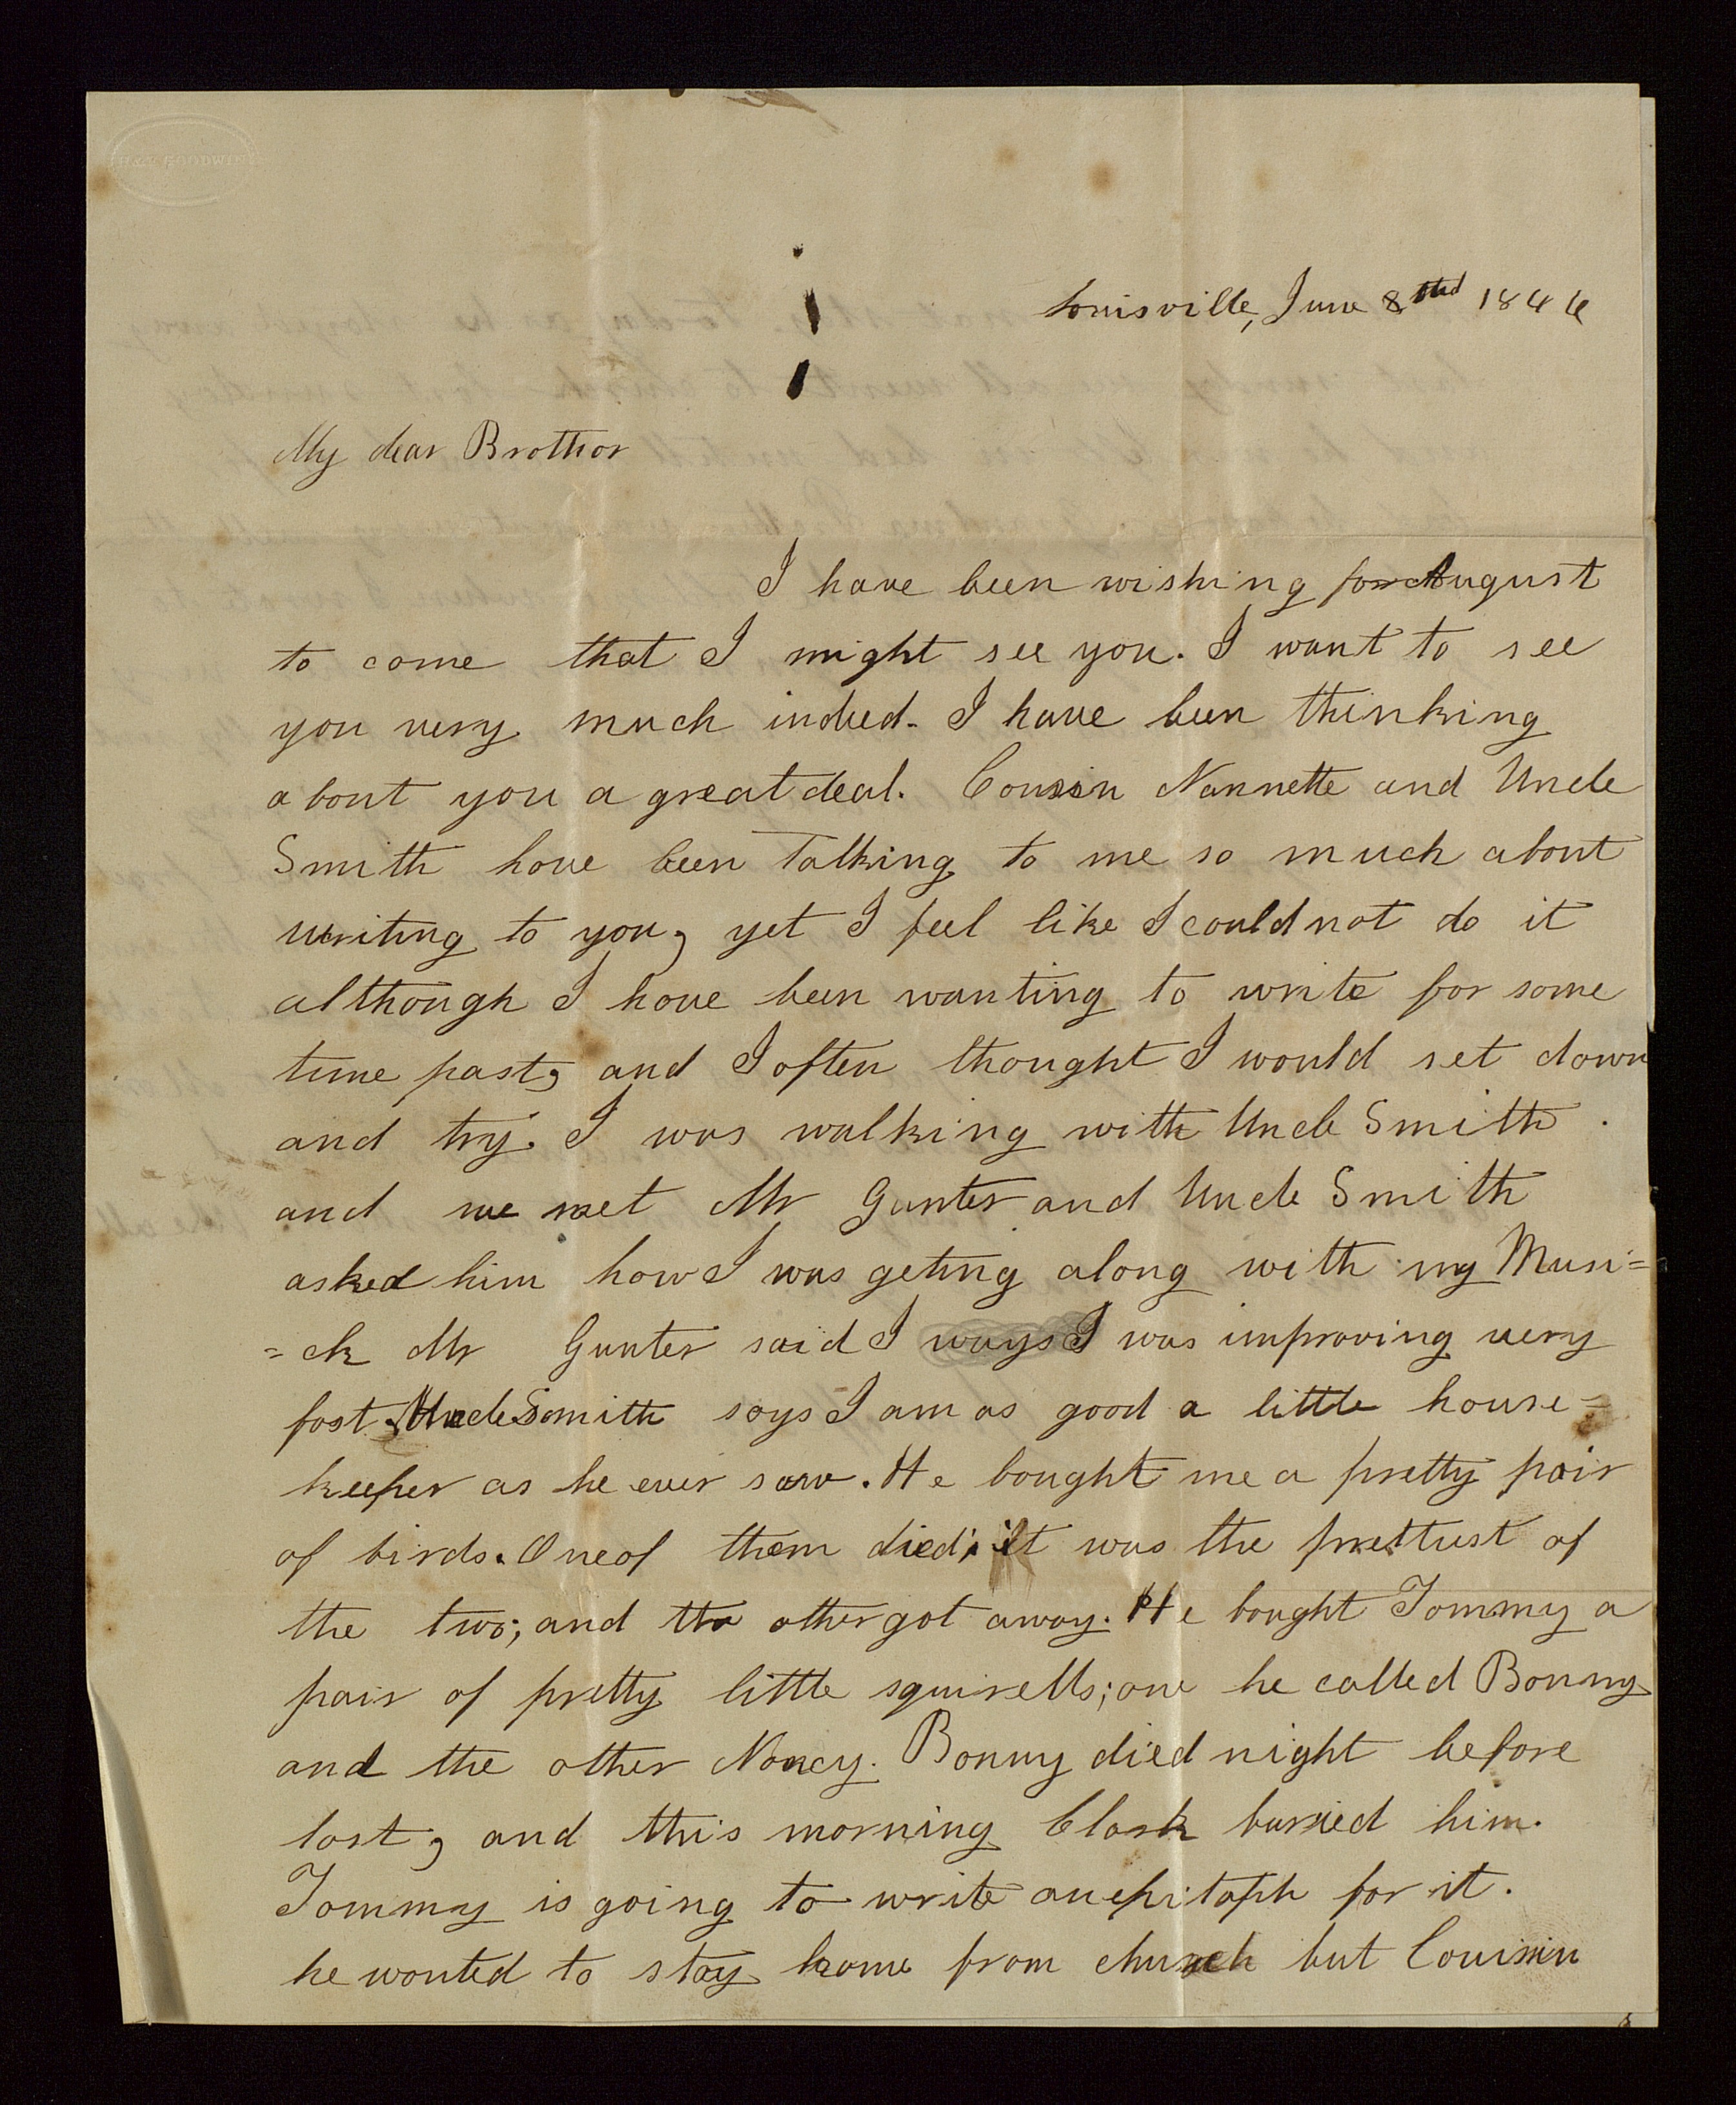 Louisville, June 8th 1846
My dear Brother
I have been wishing for August
to come that I might see you. I want to see
you very much indeed. I have been thinking
about you a great deal. Cousin Nannette and Uncle
Smith have been talking to me so much about
writing to you, yet I feel like I could not do it
although I have been wanting to write for some
time past, and I often thought I would set down
and try. I was walking with Uncle Smith
and we met Mr Gunter and Uncle Smith
asked him how I was geting along with my Musi=
=ck Mr Gunter said I ways I was improving very
fast. Uncle Smith says I am as good a little house=
keeper as he ever saw. He bought me a pretty pair
of birds. One of them died; it was the prettiest of
the two; and the other got away. He bought Tommy a
pair of pretty little squirells; one he called Bonny
and the other Nancy. Bonny died night before
last, and this morning Clark burried him.
Tommy is going to write an epitaph for it.
he wanted to stay home from church but Couisin